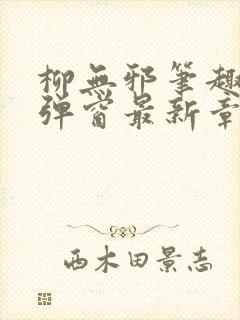 柳無邪筆趣
彈窗最新章
西木田景志